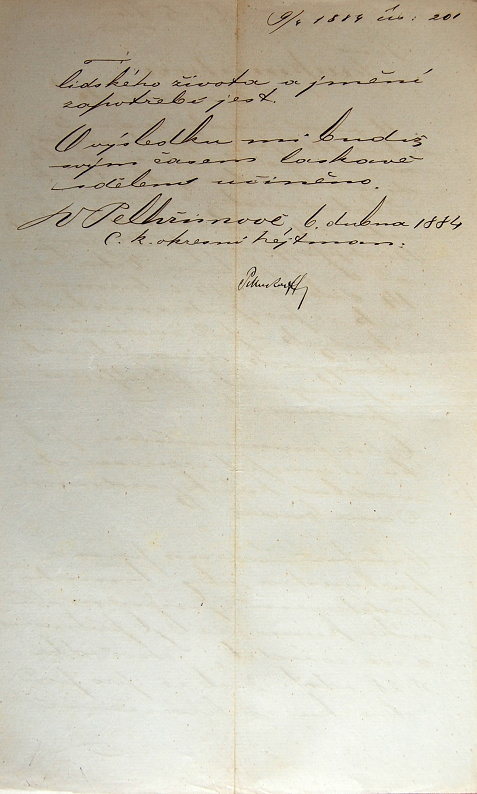 9/4 1884 čís: 201
lidského života a jmění
zapotřebí jest.
O výsledku mi budiž
svým časem laskavě
sdělení učiněno.
V Pelhřimově, 6. dubna 1884
C. k. okresní hejtman: